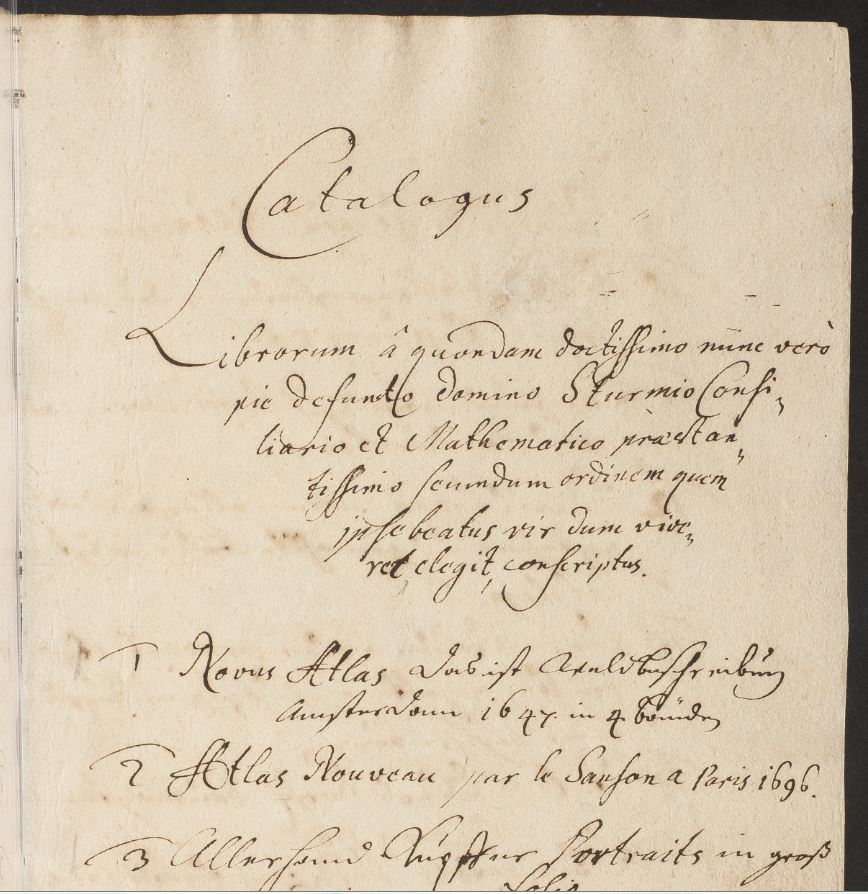 Catalogus
Librorum â quondam doctissimo nunc verò
pie defuncto domino Sturmio Consi„
liario et Mathematico præstan„
tissimo secundum ordinem quem
ipse beatus vir dum vive„
ret elegit, conscriptus.
1 Novus Atlas das ist Weldbeschreibung
Amsterdam 1647. in 4 bänden
2 Atlas Nouveau par le Sanson a Paris 1696.
3 Allerhand Kupffer Portraits in groß
Folio